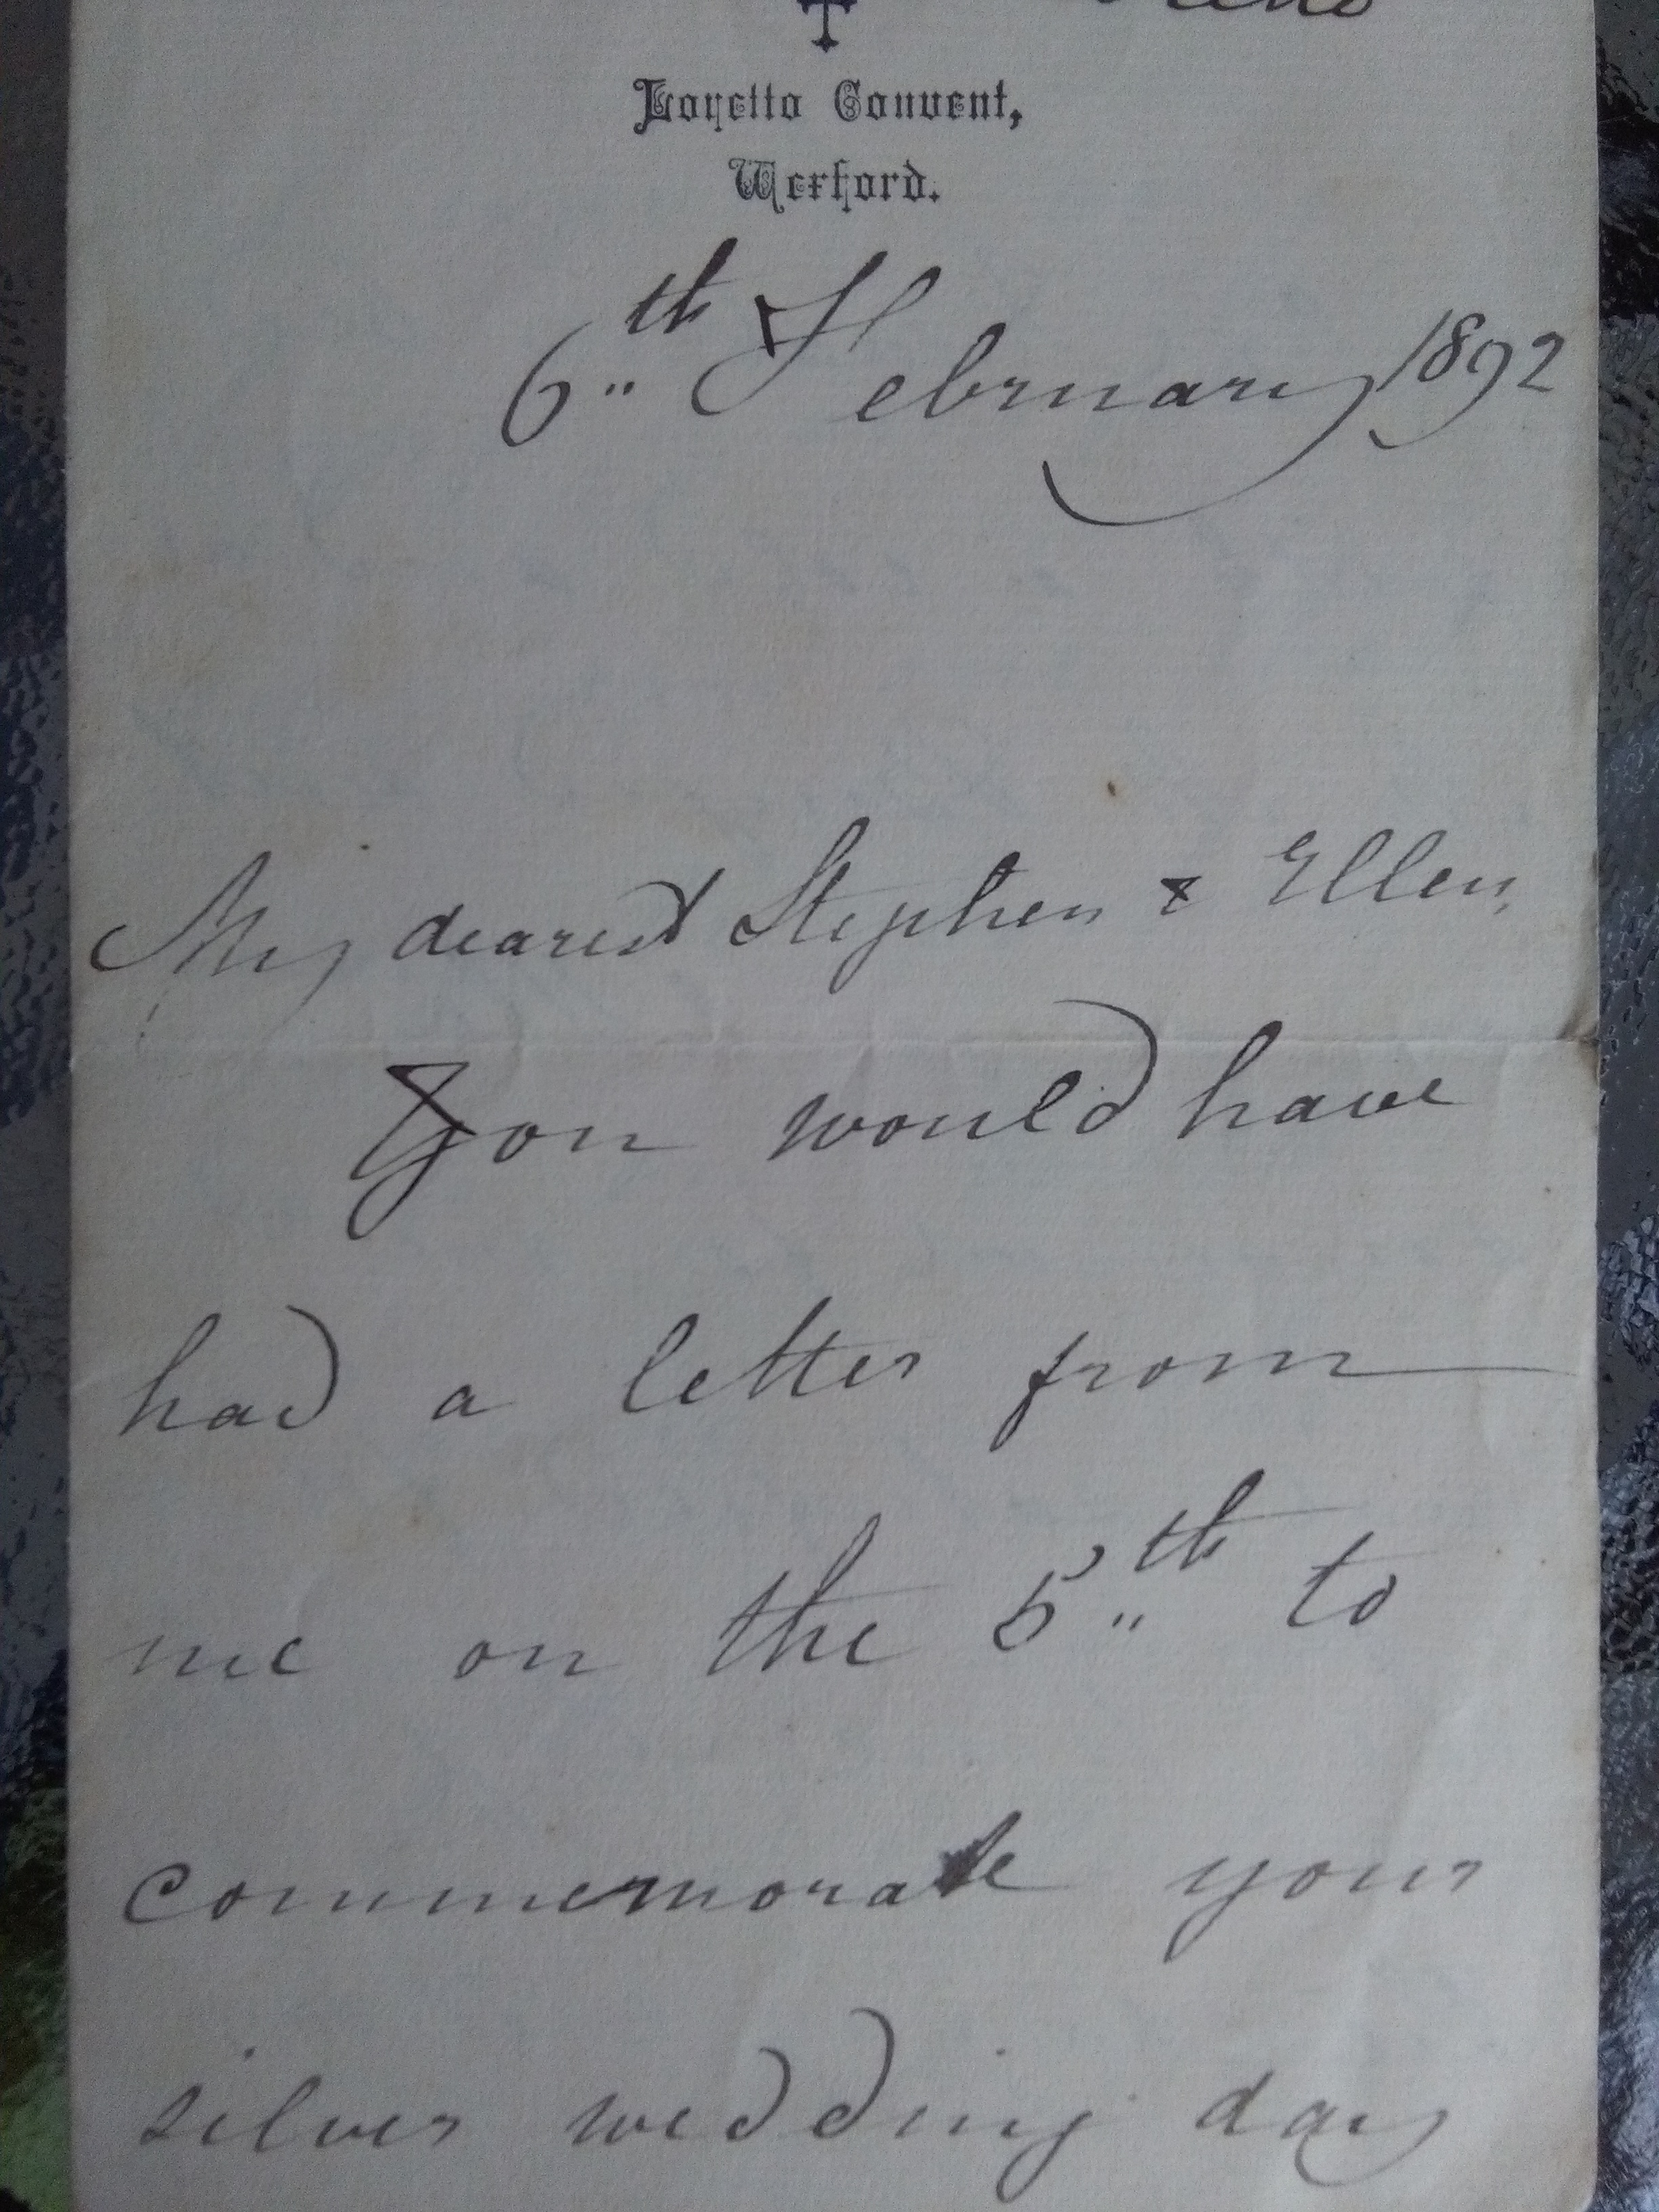 Loretto Convent,
Wexford.
6th February 1892
My dearest Stephen & Ellen,
You would have
had a letter from
me on the 5th to
commemorate your
silver wedding day